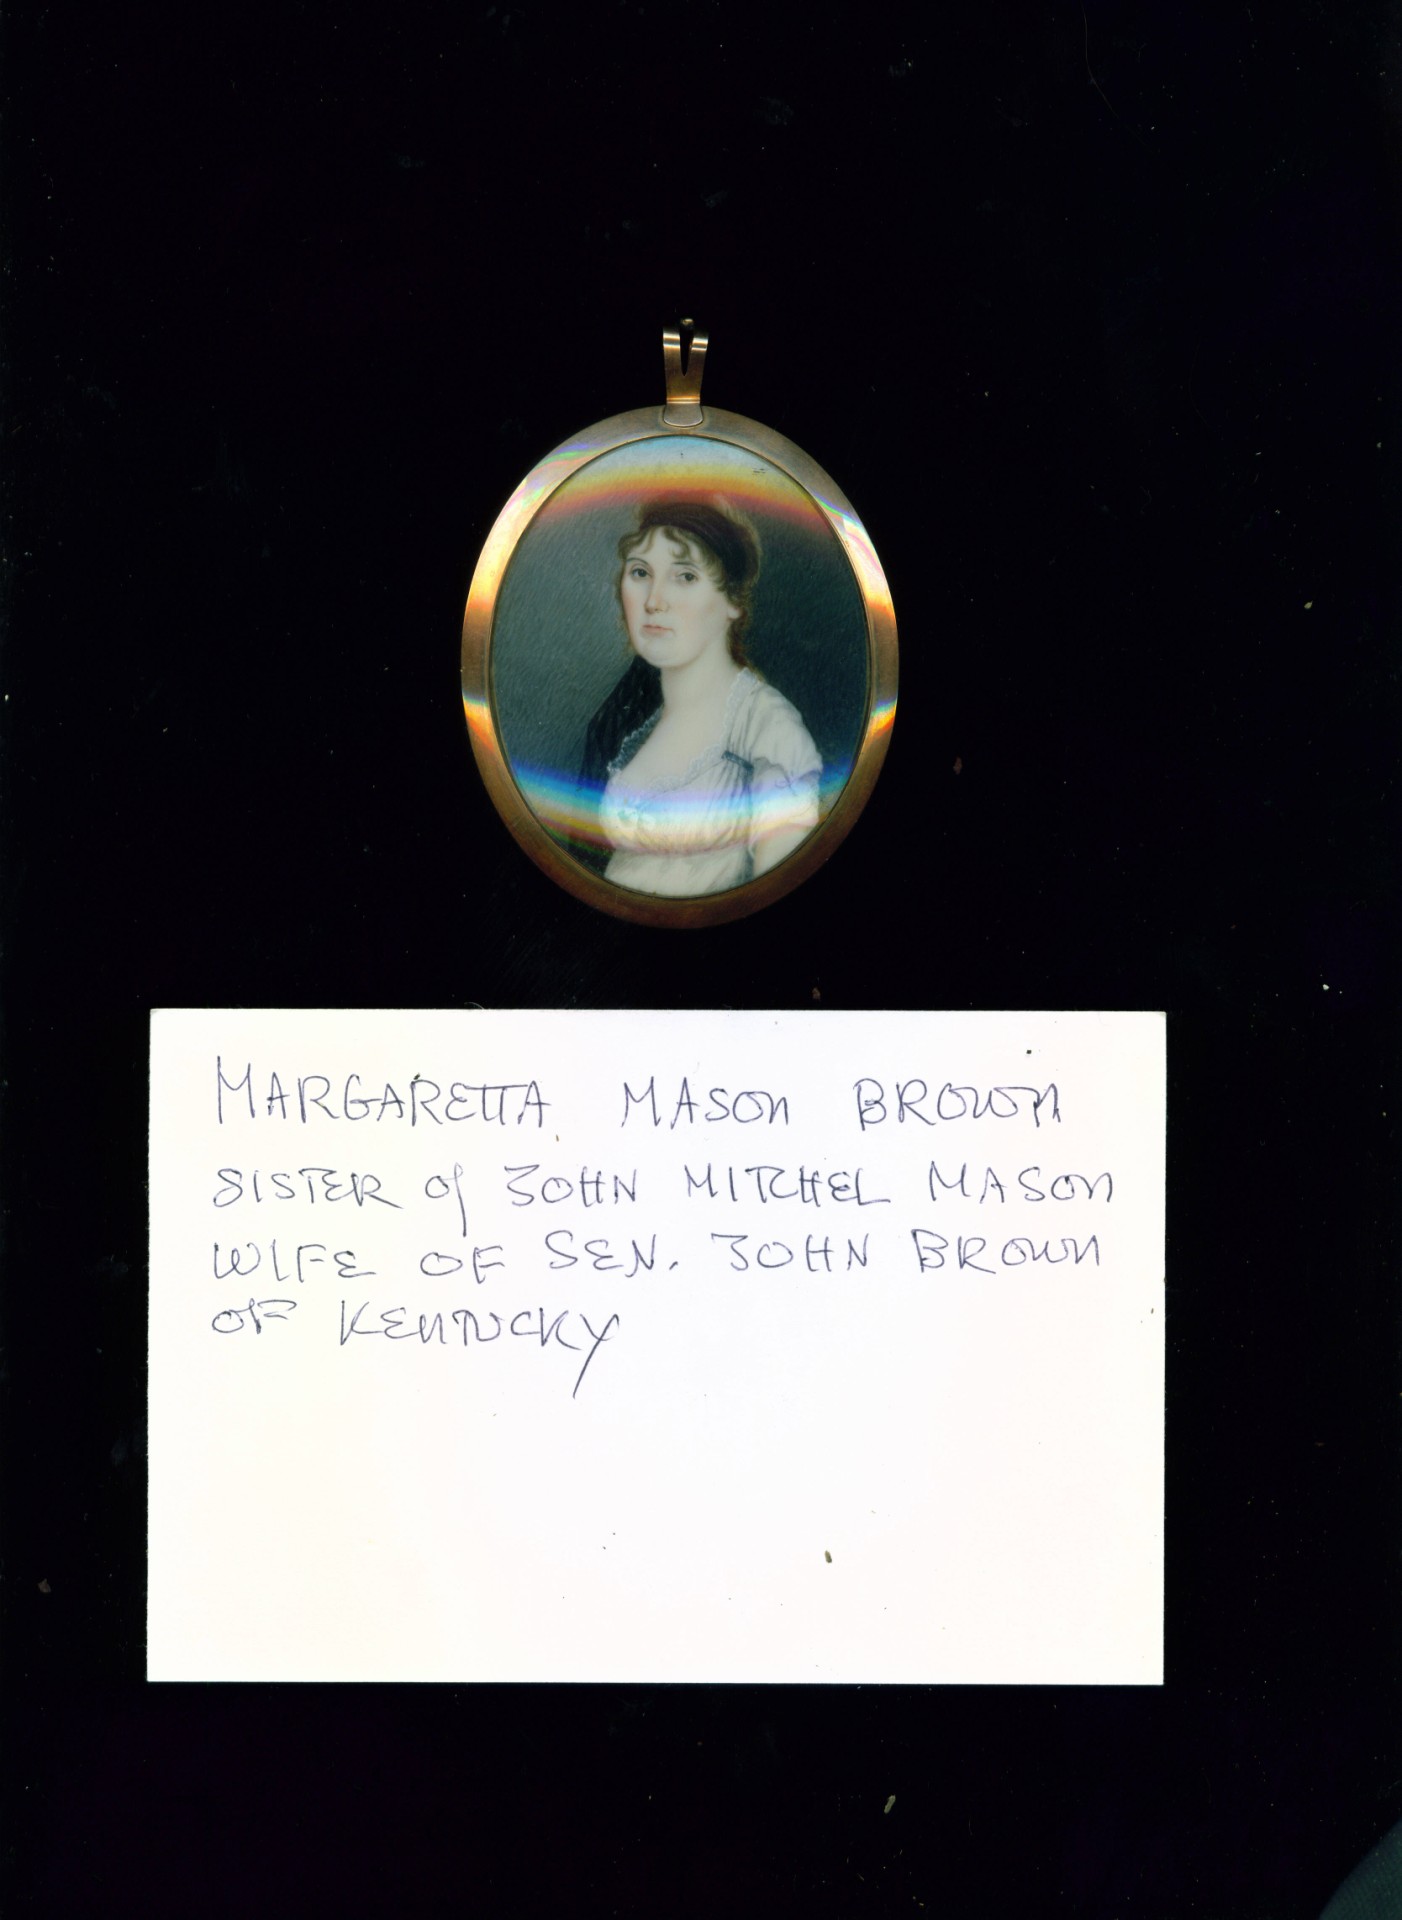 MARGARETTA MASON BROWN
SISTER of JOHN MITCHEL MASON
WIFE OF SEN. JOHN BROWN
OF KENTUCKY